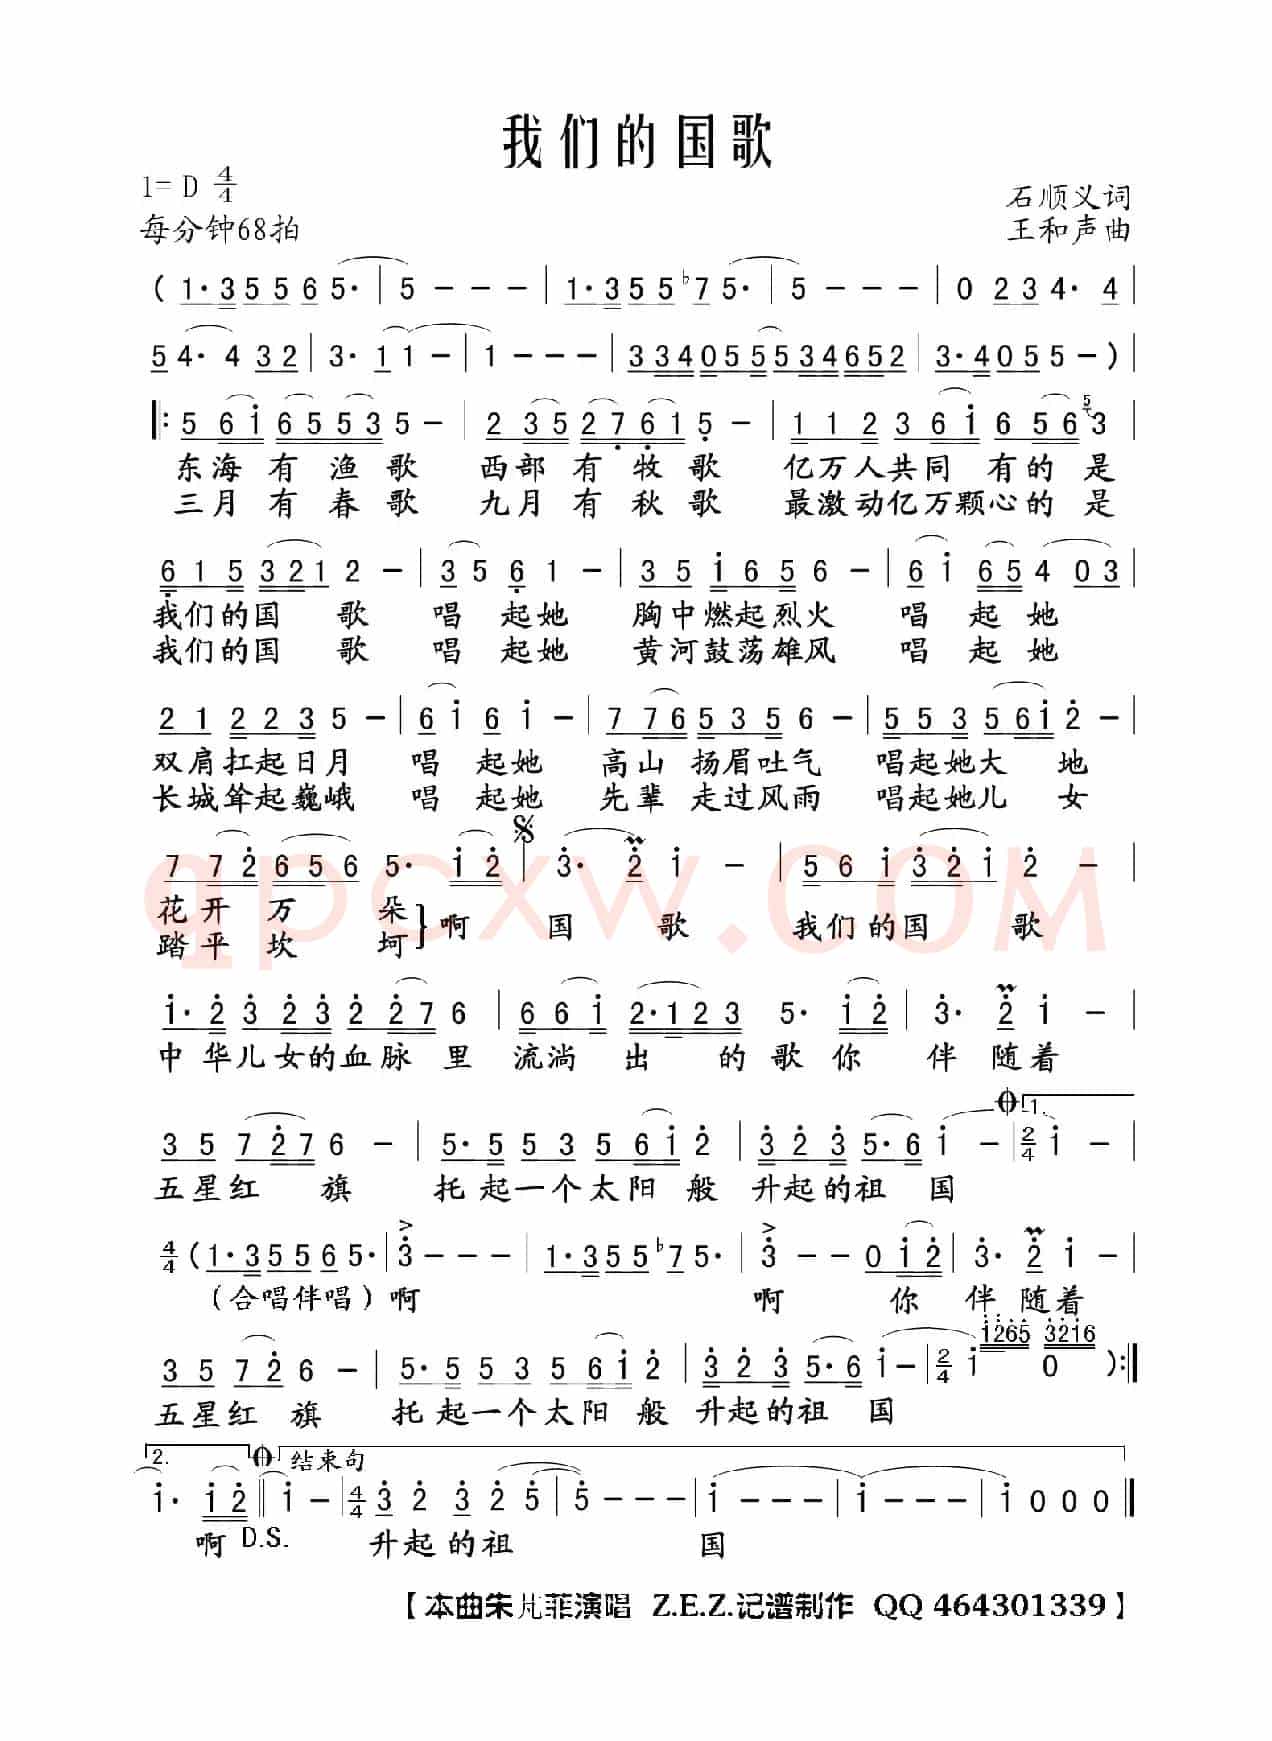 我们的国歌
1= D 4/4
石顺义词
每分钟68拍
王和声曲
( 1·3 5 5 6 5· | 5 - - - | 1·3 5 5 ♭7 5· | 5 - - - | 0 2 3 4· 4 |
5 4· 4 3 2 | 3· 1 1 - | 1 - - - | 3 3 4 0 5 5 5 3 4 6 5 2 | 3· 4 0 5 5 - )
|: 5 6 i 6 5 5 3 5 - | 2 3 5 2 7 6 1 5 - | 1 1 2 3 6 i 6 5 6 5 3 |
东海有渔歌 西部有牧歌 亿万人共同有的是
三月有春歌 九月有秋歌 最激动亿万颗心的是
6 1 5 3 2 1 2 - | 3 5 6 1 - | 3 5 i 6 5 6 - | 6 i 6 5 4 0 3 |
我们的国歌 唱起她 胸中燃起烈火 唱起她
我们的国歌 唱起她 黄河鼓荡雄风 唱起她
2 1 2 2 3 5 - | 6 i 6 i - | 7 7 6 5 3 5 6 - | 5 5 3 5 6 i 2 - |
双肩扛起日月 唱起她 高山扬眉吐气 唱起她大地
长城耸起巍峨 唱起她 先辈走过风雨 唱起她儿女
7 7 2 6 5 6 5· i 2 | 3· 2 i - | 5 6 i 3 2 i 2 - |
花开万朵
踏平坎坷} 啊国歌 我们的国歌
i· 2 3 2 3 2 2 7 6 | 6 6 i 2·1 2 3 5· i 2 | 3· 2 i - |
中华儿女的血脉里 流淌出的歌你 伴随着
1.
3 5 7 2 7 6 - | 5· 5 5 3 5 6 i 2 | 3 2 3 5·6 i - | 2/4 i - |
五星红旗 托起一个太阳般 升起的祖国
4/4 ( 1·3 5 5 6 5· | 3 - - - | 1·3 5 5 ♭7 5· | 3 - - 0 i 2 | 3· 2 i - |
(合唱伴唱)啊 啊 你 伴随着
i265 3216
3 5 7 2 6 - | 5· 5 5 3 5 6 i 2 | 3 2 3 5·6 i - | 2/4 i 0 ) :|
五星红旗 托起一个太阳般 升起的祖国
2. 结束句
i· i 2 || i - | 4/4 3 2 3 2 5 | 5 - - - | i - - - | i - - - | i 0 0 0 ||
啊 D.S. 升起的祖 国
【本曲朱凡菲演唱 Z.E.Z.记谱制作 QQ 464301339】
qpcxw.COM